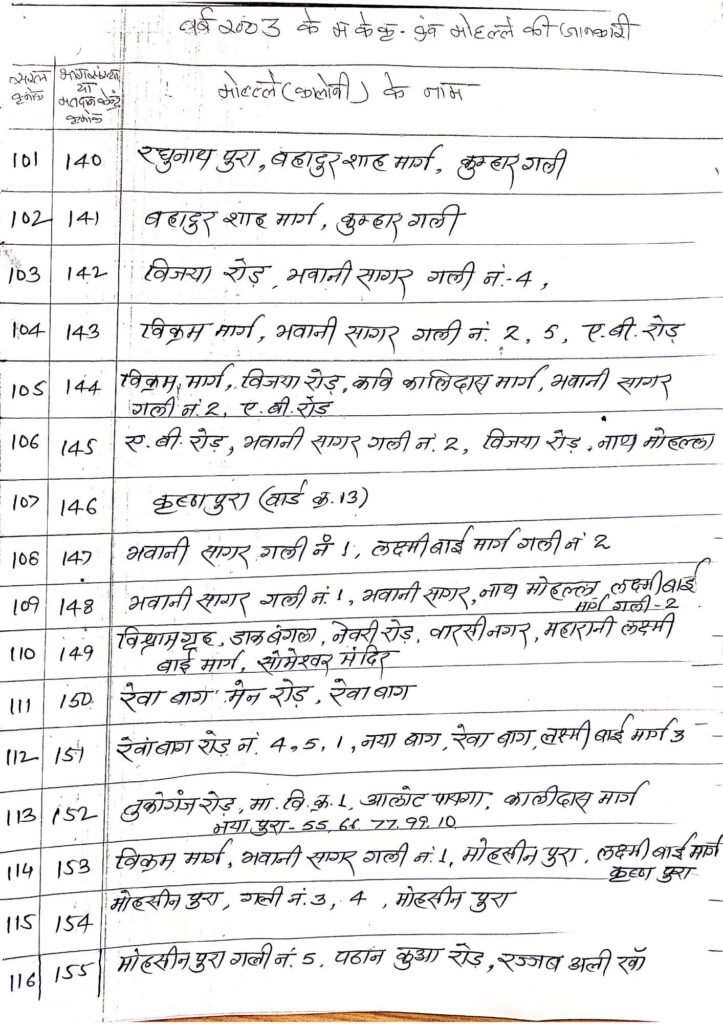 वर्ष 2003 के म के क्र. एवं मोहल्ले की जानकारी
भाग संख्या
या
मतदान केन्द्र
क्रमांक
मोहल्ले (कालोनी) के नाम
101 140 रघुनाथ पुरा, बहादुर शाह मार्ग, कुम्हार गली
102 141 बहादुर शाह मार्ग, कुम्हार गली
103 142 विजया रोड़, भवानी सागर गली नं.-4,
104 143 विक्रम मार्ग, भवानी सागर गली नं. 2, 5, ए.बी. रोड़
105 144 विक्रम मार्ग, विजया रोड़, कवि कालिदास मार्ग, भवानी सागर
गली नं. 2, ए.बी. रोड
106 145 ए.बी. रोड़, भवानी सागर गली नं. 2, विजया रोड़, नाथ मोहल्ला
107 146 कृष्णपुरा (वार्ड क्र. 13)
108 147 भवानी सागर गली नं 1, लक्ष्मीबाई मार्ग गली नं 2
109 148 भवानी सागर गली नं. 1, भवानी सागर, नाथ मोहल्ला, लक्ष्मीबाई
मार्ग गली-2
110 149 विश्रामगृह, डाक बंगला, नेवरी रोड़, वारसी नगर, महारानी लक्ष्मी
बाई मार्ग, सोमेश्वर मंदिर
111 150 रेवा बाग मेन रोड़, रेवा बाग
112 151 रेवाबाग रोड़ नं. 4, 5, 1, नया बाग, रेवा बाग, लक्ष्मी बाई मार्ग 3
113 152 तुकोगंज रोड़, मा. वि. क्र. 1, आलोट पायगा, कालीदास मार्ग
नया पुरा - 55, 66 77, 99, 10
114 153 विक्रम मार्ग, भवानी सागर गली नं. 1, मोहसीन पुरा, लक्ष्मी बाई मार्ग
कृष्ण पुरा
115 154 मोहसीन पुरा, गली नं. 3, 4, मोहसीन पुरा
116 155 मोहसीन पुरा गली नं. 5, पठान कुआ रोड़, रज्जब अली खॉ